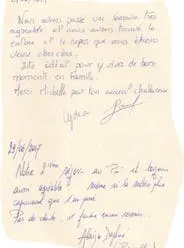 Nous avons passé une semaine très
agréable et nous avons trouvé le
calme et le repos que nous étions
venu chercher.
Site idéal pour y vivre de bons
moments en famille.
Merci Michelle par ton accueil chaleureux
29/06/2007
Notre 2ème séjour au "Pi" et toujours
aussi agréable même si la météo plus
capricieuse que l'an passé
Pas de doute, il faudra encore revenir.